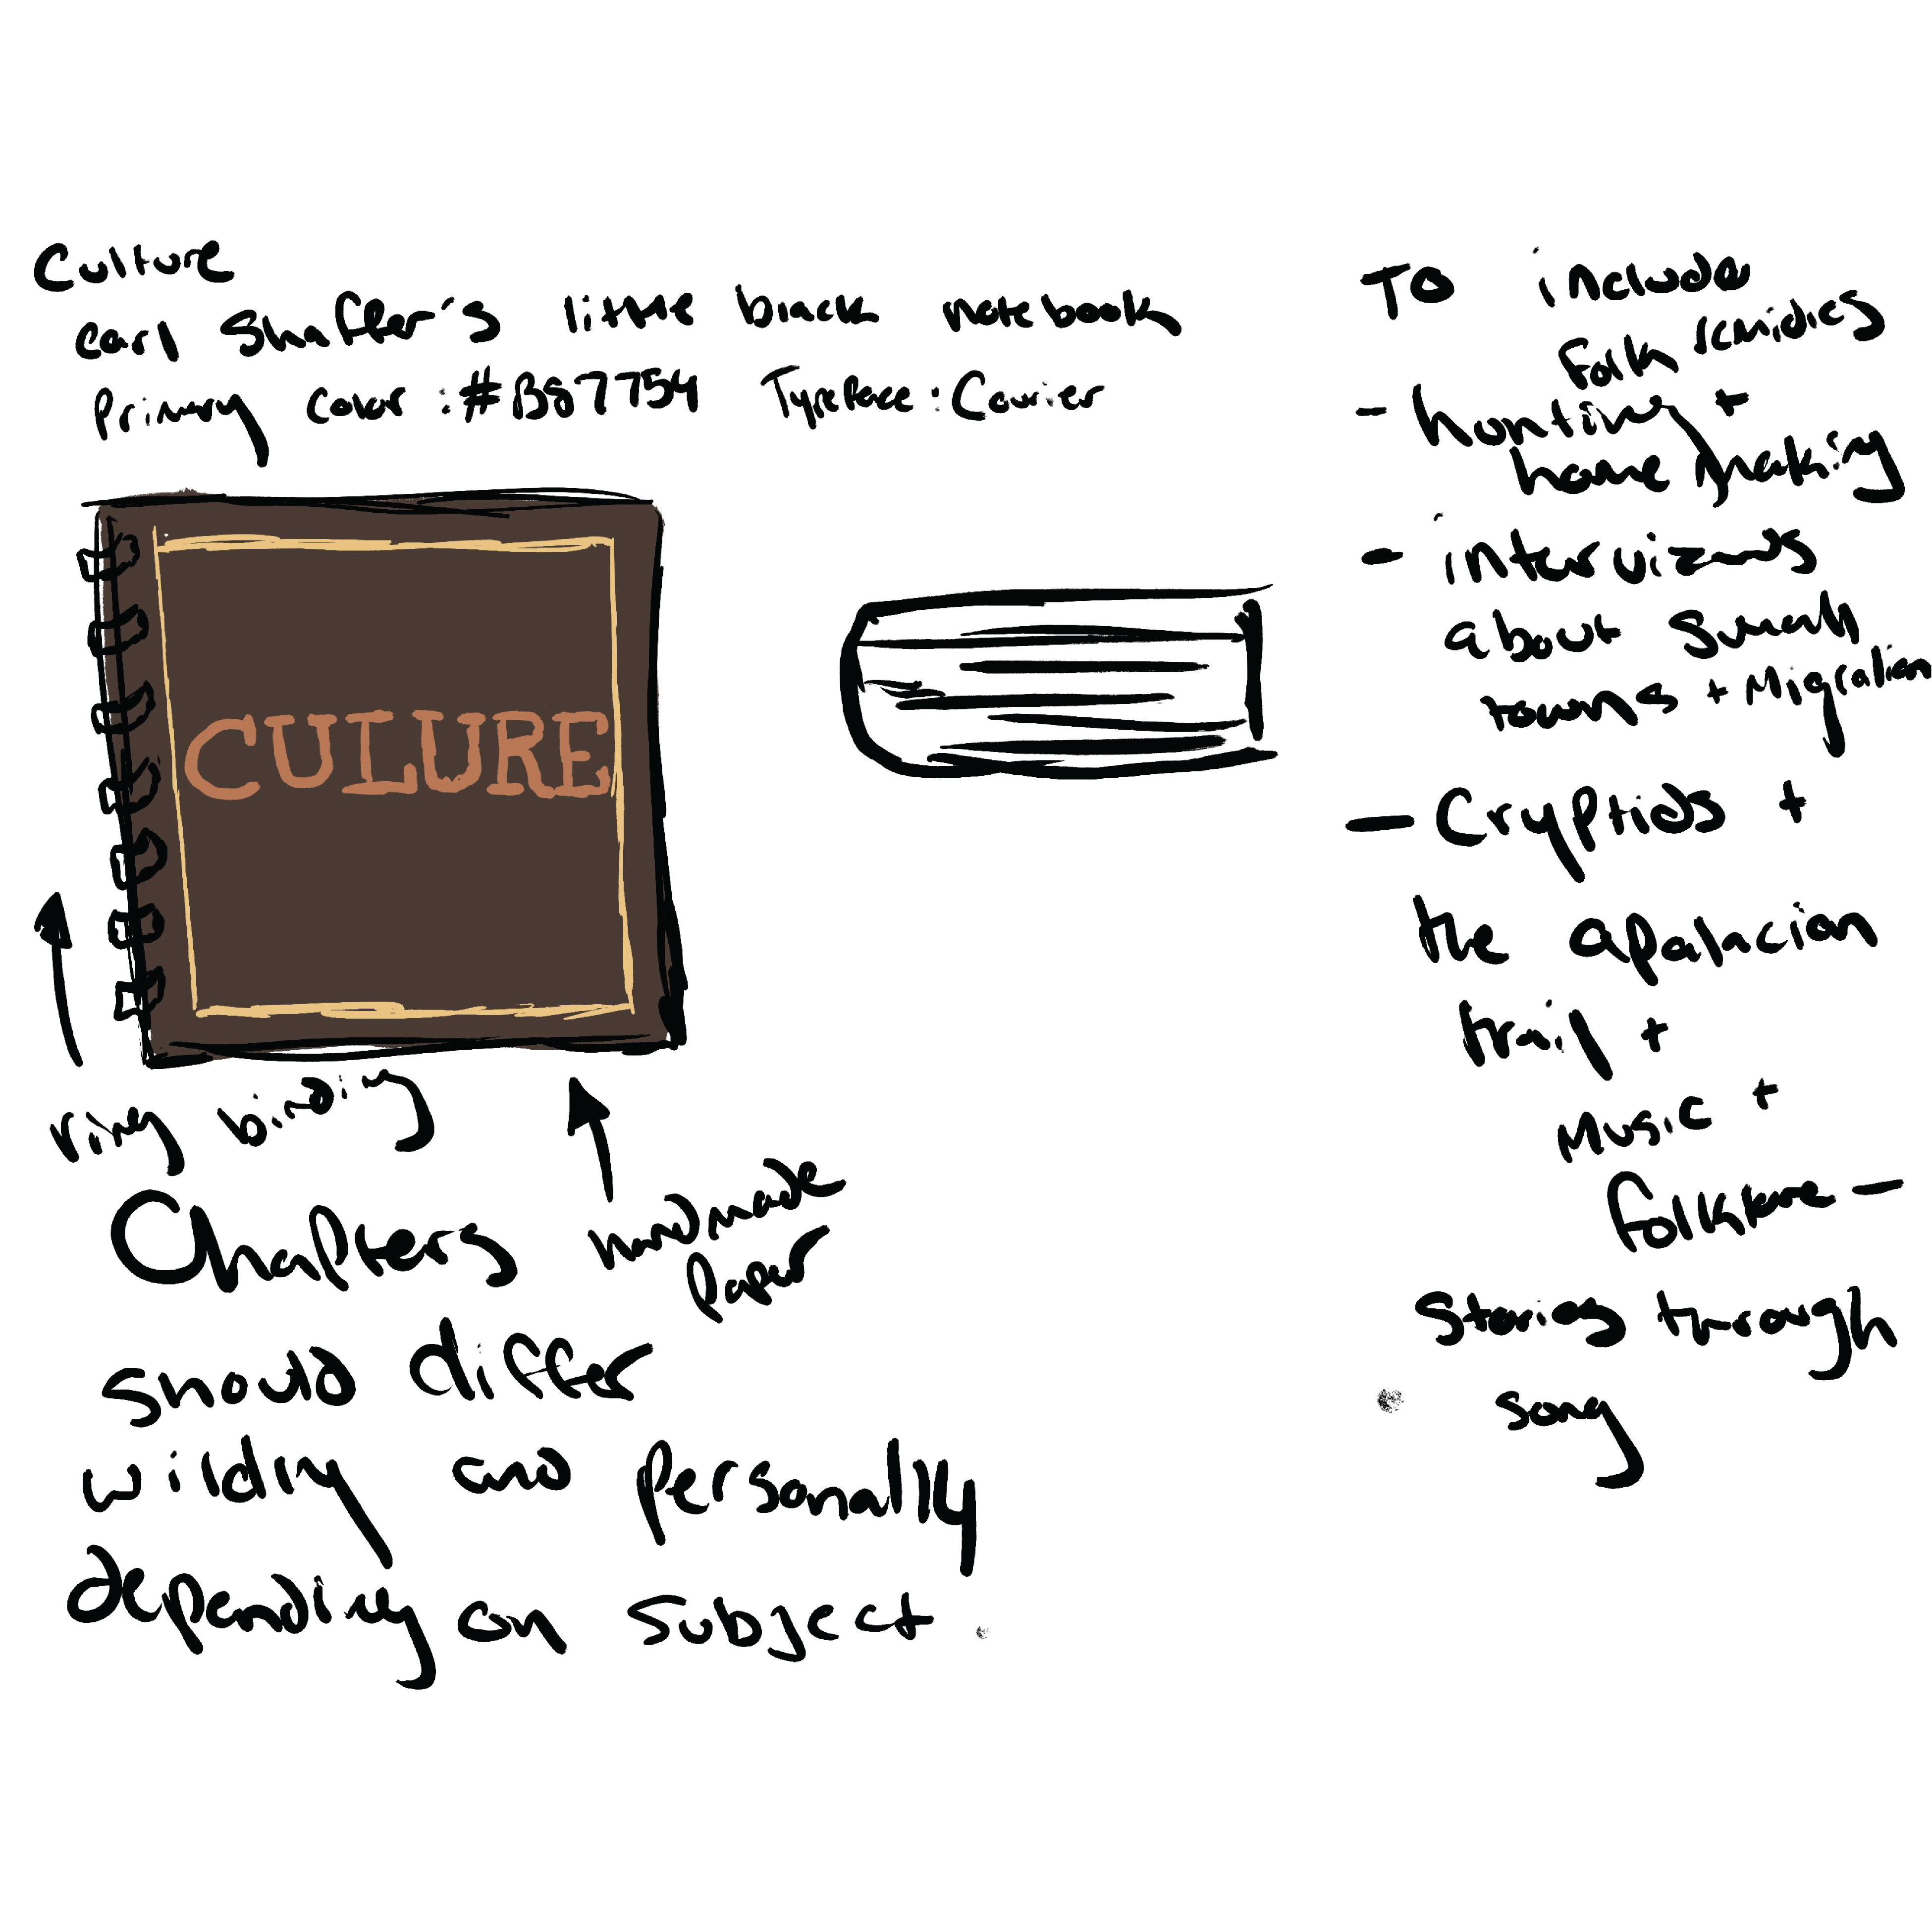 Culture
earl Shaffer's little black notebook
Primary color: #B87754 Typeface: Courier
CULURE
ring binding
handmade
paper
Chapters
should differ
wildly and personally
depending on subject.
To include
folk remidies
- hunting +
home making
- interviews
about small
towns + Migration
- Cryptids +
the apalacian
trail +
Music +
folklore -
stories through
song